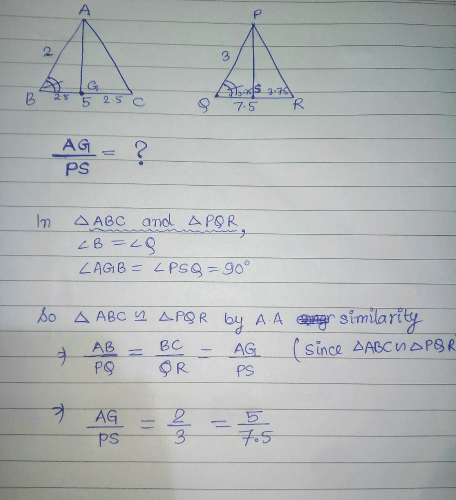 A
P
2
3
B 2.5 G 5 2.5 C
Q S 3.75 R
7.5
AG/PS = ?
In △ABC and △PQR,
∠B = ∠Q
∠AGB = ∠PSQ = 90°
So △ABC ∽ △PQR by A.A similarity
⇒ AB/PQ = BC/QR = AG/PS (Since △ABC ∽ △PQR
⇒ AG/PS = 2/3 = 5/7.5